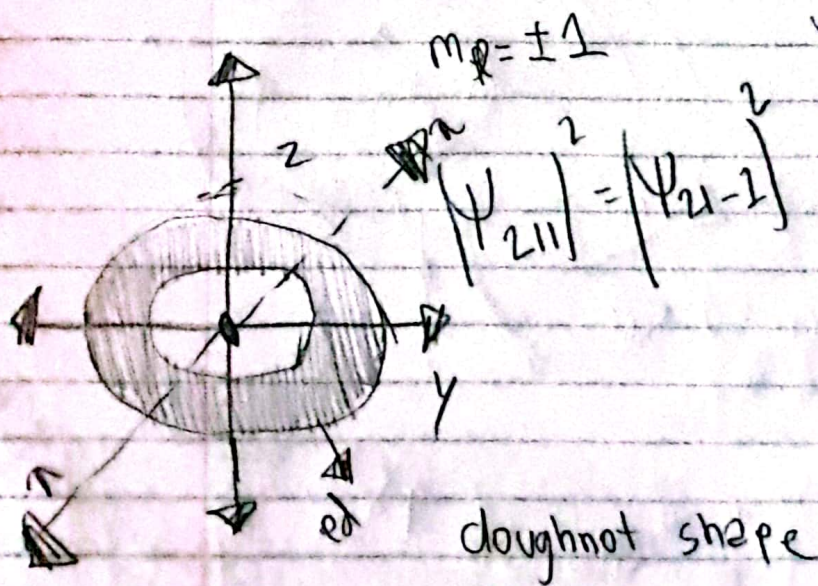 mℓ = ±1
z
|ψ₂₁₁|² = |ψ₂₁₋₁|²
y
ed
doughnot shape